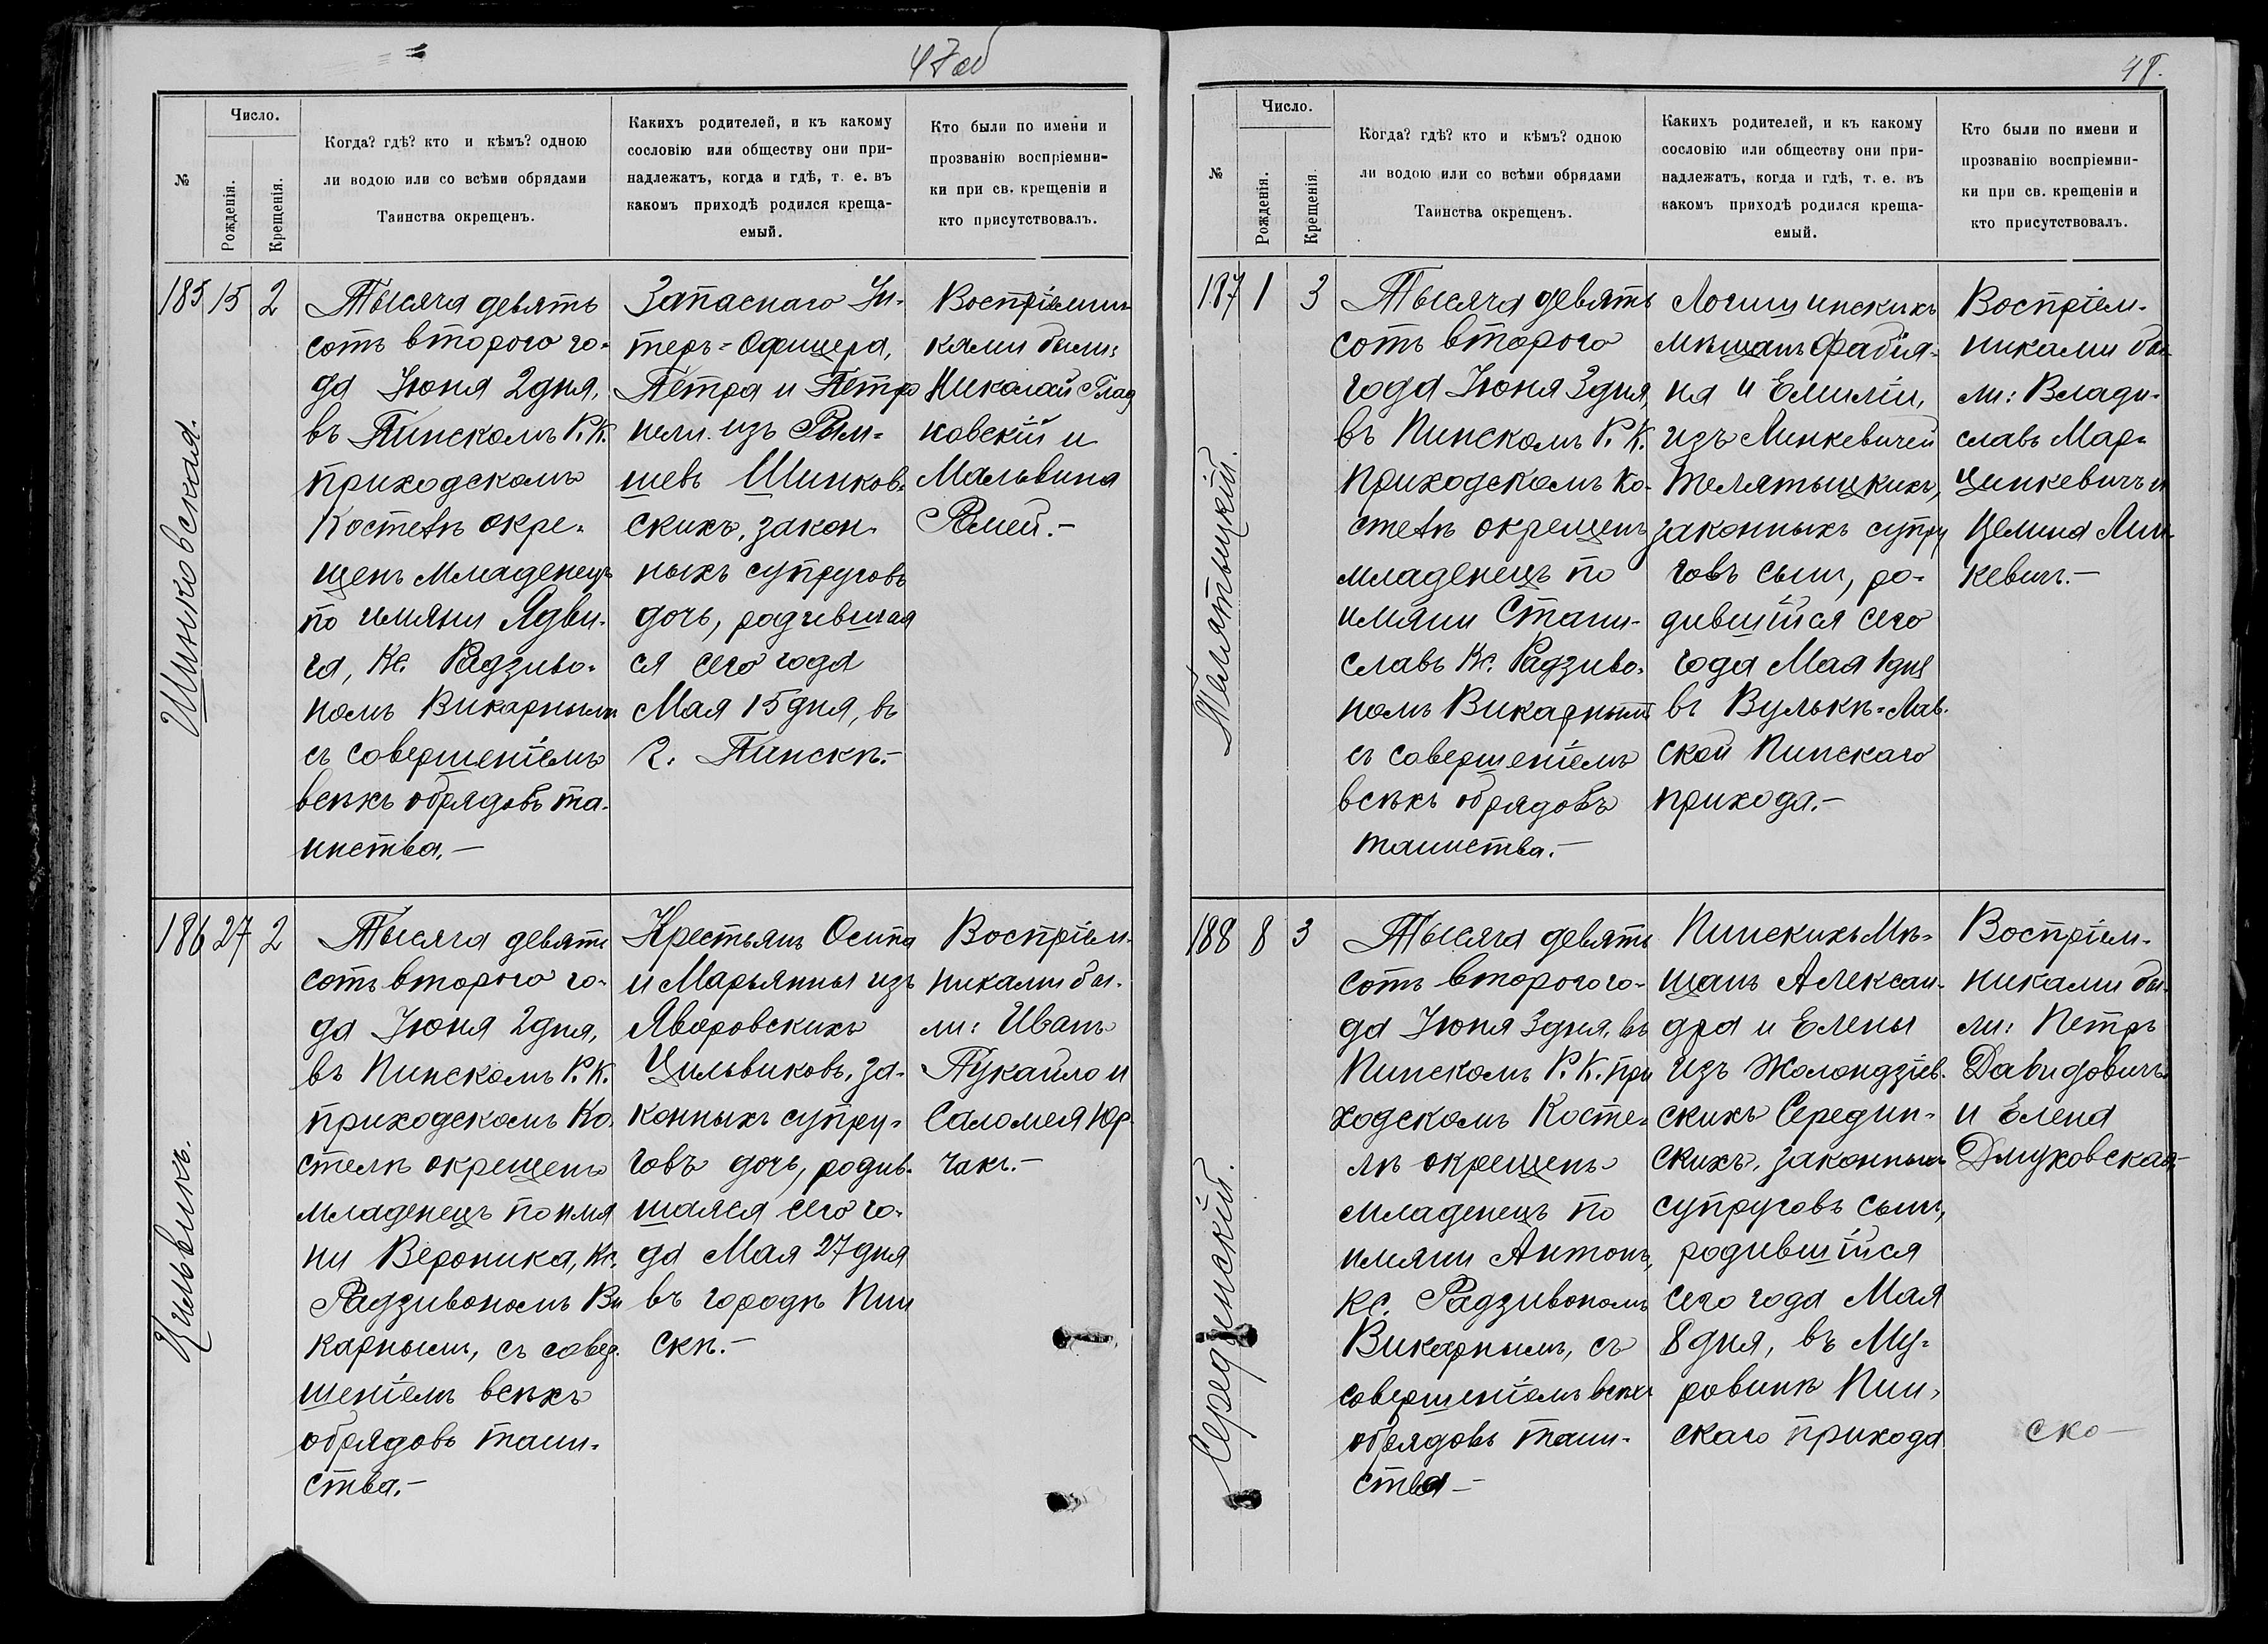 47 об
№
Число.
Рожденія.
Крещенія.
Когда? гдѣ? кто и кѣмъ? одною
ли водою или со всѣми обрядами
Таинства окрещенъ.
Какихъ родителей, и къ какому
сословію или обществу они при-
надлежатъ, когда и гдѣ, т. е. въ
какомъ приходѣ родился креща-
емый.
Кто были по имени и
прозванію воспріемни-
ки при св. крещеніи и
кто присутствовалъ.
Шинковская.
185 15 2
Тысяча девять
сотъ второго го-
да Іюня 2 дня,
въ Пинскомъ Р. К.
приходскомъ
Костелѣ окре-
щенъ младенецъ
по имяни Ядви-
га, Кс. Радзиво-
номъ Викарнымъ
съ совершеніемъ
всѣхъ обрядовъ та-
инства.—
Запаснаго Ун-
теръ-Офицера,
Петра и Петро
нели изъ
шевъ Шинков-
скихъ, закон-
ныхъ супруговъ
дочь, родившая
ся сего года
Мая 15 дня, въ
г. Пинскѣ.—
Воспріемни
ками были:
Николай
ковскій и
Мальвина
Ромей.—
Цильвикъ.
186 27 2
Тысяча девять
сотъ второго го-
да Іюня 2 дня,
въ Пинскомъ Р. К.
приходскомъ Ко-
стелѣ окрещенъ
младенецъ по имя
ни Вероника, Кс.
Радзивономъ Ви
карнымъ, съ совер-
шеніемъ всѣхъ
обрядовъ таин-
ства.—
Крестьянъ Осипа
и Марьянны изъ
Яворовскихъ
Цильвиковъ, за-
конныхъ супру-
говъ дочь, родив-
шаяся сего го-
да Мая 27 дня
въ городѣ Пин
скѣ.—
Воспріем-
никами бы-
ли: Иванъ
Пукайло и
Саломея Юр
чакъ.—
48.
№
Число.
Рожденія.
Крещенія.
Когда? гдѣ? кто и кѣмъ? одною
ли водою или со всѣми обрядами
Таинства окрещенъ.
Какихъ родителей, и къ какому
сословію или обществу они при-
надлежатъ, когда и гдѣ, т. е. въ
какомъ приходѣ родился креща-
емый.
Кто были по имени и
прозванію воспріемни-
ки при св. крещеніи и
кто присутствовалъ.
Телятыцкій.
187 1 3
Тысяча девять
сотъ второго
года Іюня 3 дня,
въ Пинскомъ Р. К.
приходскомъ Ко-
стелѣ окрещенъ
младенецъ по
имяни Стани-
славъ Кс. Радзиво-
номъ Викарнымъ
съ совершеніемъ
всѣхъ обрядовъ
таинства.—
Логишинскихъ
мѣщанъ Фабія-
на и Емиліи,
изъ Линкевичей
Телятыцкихъ,
законныхъ супру
говъ сынъ, ро-
дившійся сего
года Мая 1 дня
въ Вулькѣ-Лав-
ской Пинскаго
прихода.—
Воспріем-
никами бы-
ли: Влади-
славъ Мар-
цинкевичъ и
Целина Лин-
кевичъ.—
Серединскій.
188 8 3
Тысяча девять
сотъ второго го-
да Іюня 3 дня, въ
Пинскомъ Р. К. при
ходскомъ Косте-
лѣ окрещенъ
младенецъ по
имяни Антонъ,
Кс. Радзивономъ
Викарнымъ, съ
совершеніемъ всѣхъ
обрядовъ таин-
ства—
Пинскихъ Мѣ-
щанъ Алексан-
дра и Елены
изъ Жолондзіев-
скихъ Середин-
скихъ, законныхъ
супруговъ сынъ,
родившійся
сего года Мая
8 дня, въ Му-
ровинѣ Пин-
скаго прихода
Воспріем-
никами бы-
ли: Петръ
Давидовичъ
и Елена
Дмуховская—
ско—